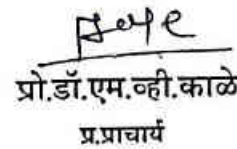 प्रो.डॉ.एम.व्ही.काळे
प्र.प्राचार्य